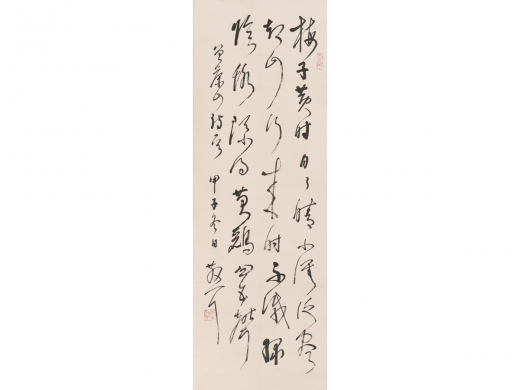 梅子黄时日日晴小溪泛尽
却山行来时不减绿
阴路添得黄鹂四五声
曾茶山诗 甲子冬日